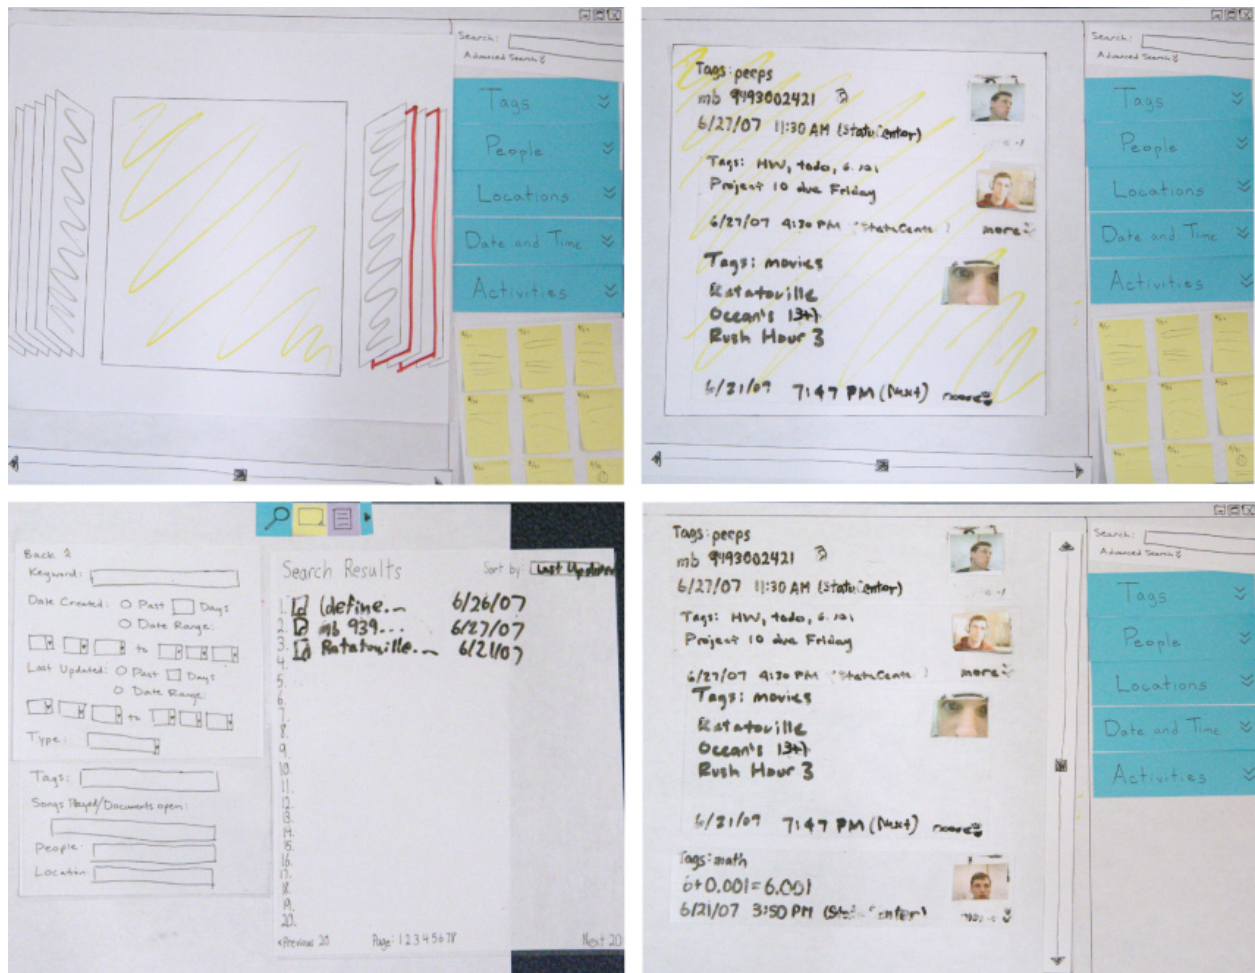 Search:
Advanced Search
Tags
People
Locations
Date and Time
Activities
Search:
Advanced Search
Tags: peeps
mb 9493002421
6/27/07 11:30 AM (StataCenter)
Tags: HW, todo, 6.101
Project 10 due Friday
6/27/07 4:30 PM (StataCente )
more
Tags: movies
Ratatouille
Ocean's 13
Rush Hour 3
6/21/09 7:47 PM (Next) more
Tags
People
Locations
Date and Time
Activities
Back
Keyword:
Date Created: Past Days
Date Range:
to
Last Updated: Past Days
Date Range:
to
Type:
Tags:
Songs Played/Documents open:
People:
Location:
Search Results
Sort by: Last Updated
1. (define...
6/26/07
2. mb 939...
6/27/07
3. Ratatouille...
6/21/07
4.
5.
6.
7.
8.
9.
10.
11.
12.
13.
14.
15.
16.
17.
18.
19.
20.
<Previous 20
Page: 1 2 3 4 5 6 7 8
Next 20
Search:
Advanced Search
Tags: peeps
mb 9493002421
6/27/07 11:30 AM (StataCenter)
Tags: HW, todo, 6.101
Project 10 due Friday
6/27/07 4:30 PM (StataCente )
more
Tags: movies
Ratatouille
Ocean's 13
Rush Hour 3
6/21/09 7:47 PM (Next) more
Tags: math
6+0.001=6.001
6/21/07 3:50 PM (Stata Center)
Tags
People
Locations
Date and Time
Activities